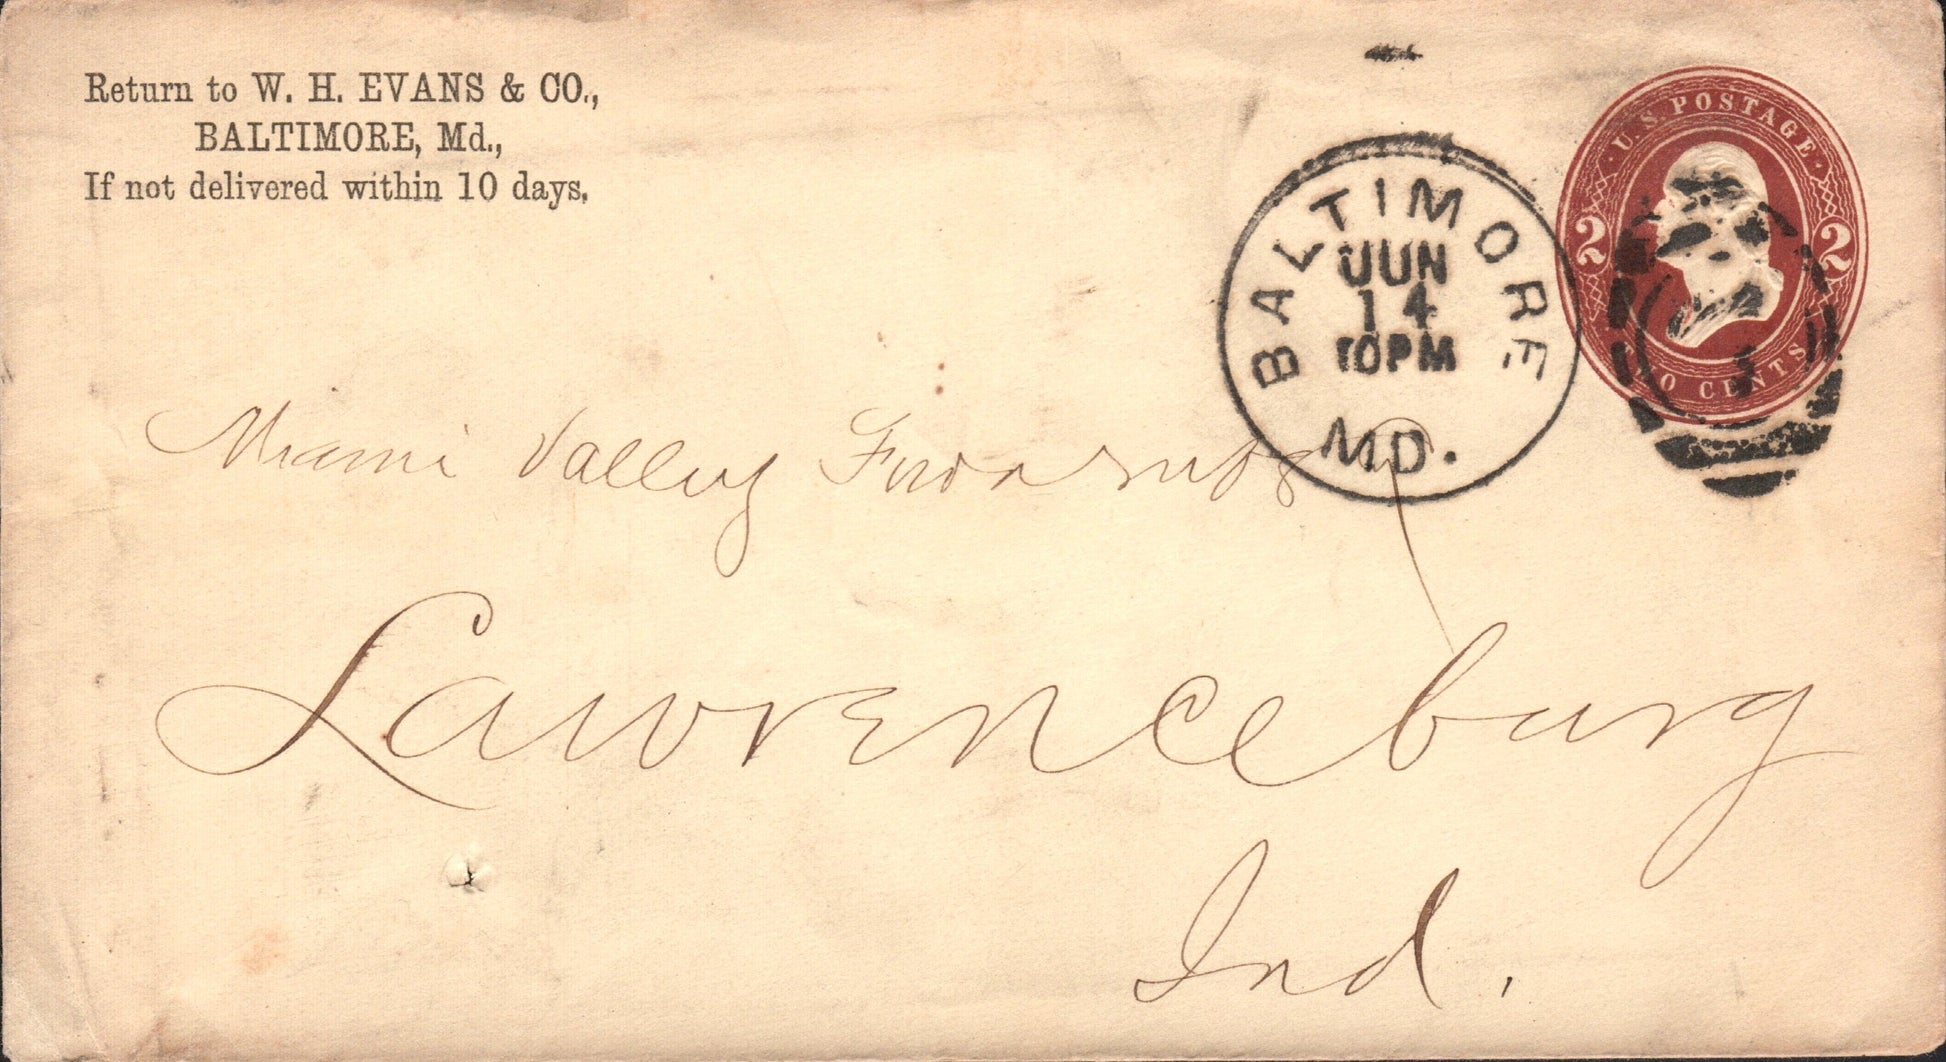 Return to W. H. EVANS & CO.,
BALTIMORE, Md.,
If not delivered within 10 days.
U.S. POSTAGE
2 2
TWO CENTS
BALTIMORE
JUN
14
10PM
MD.
Miami Valley
Lawrenceburg
Ind.